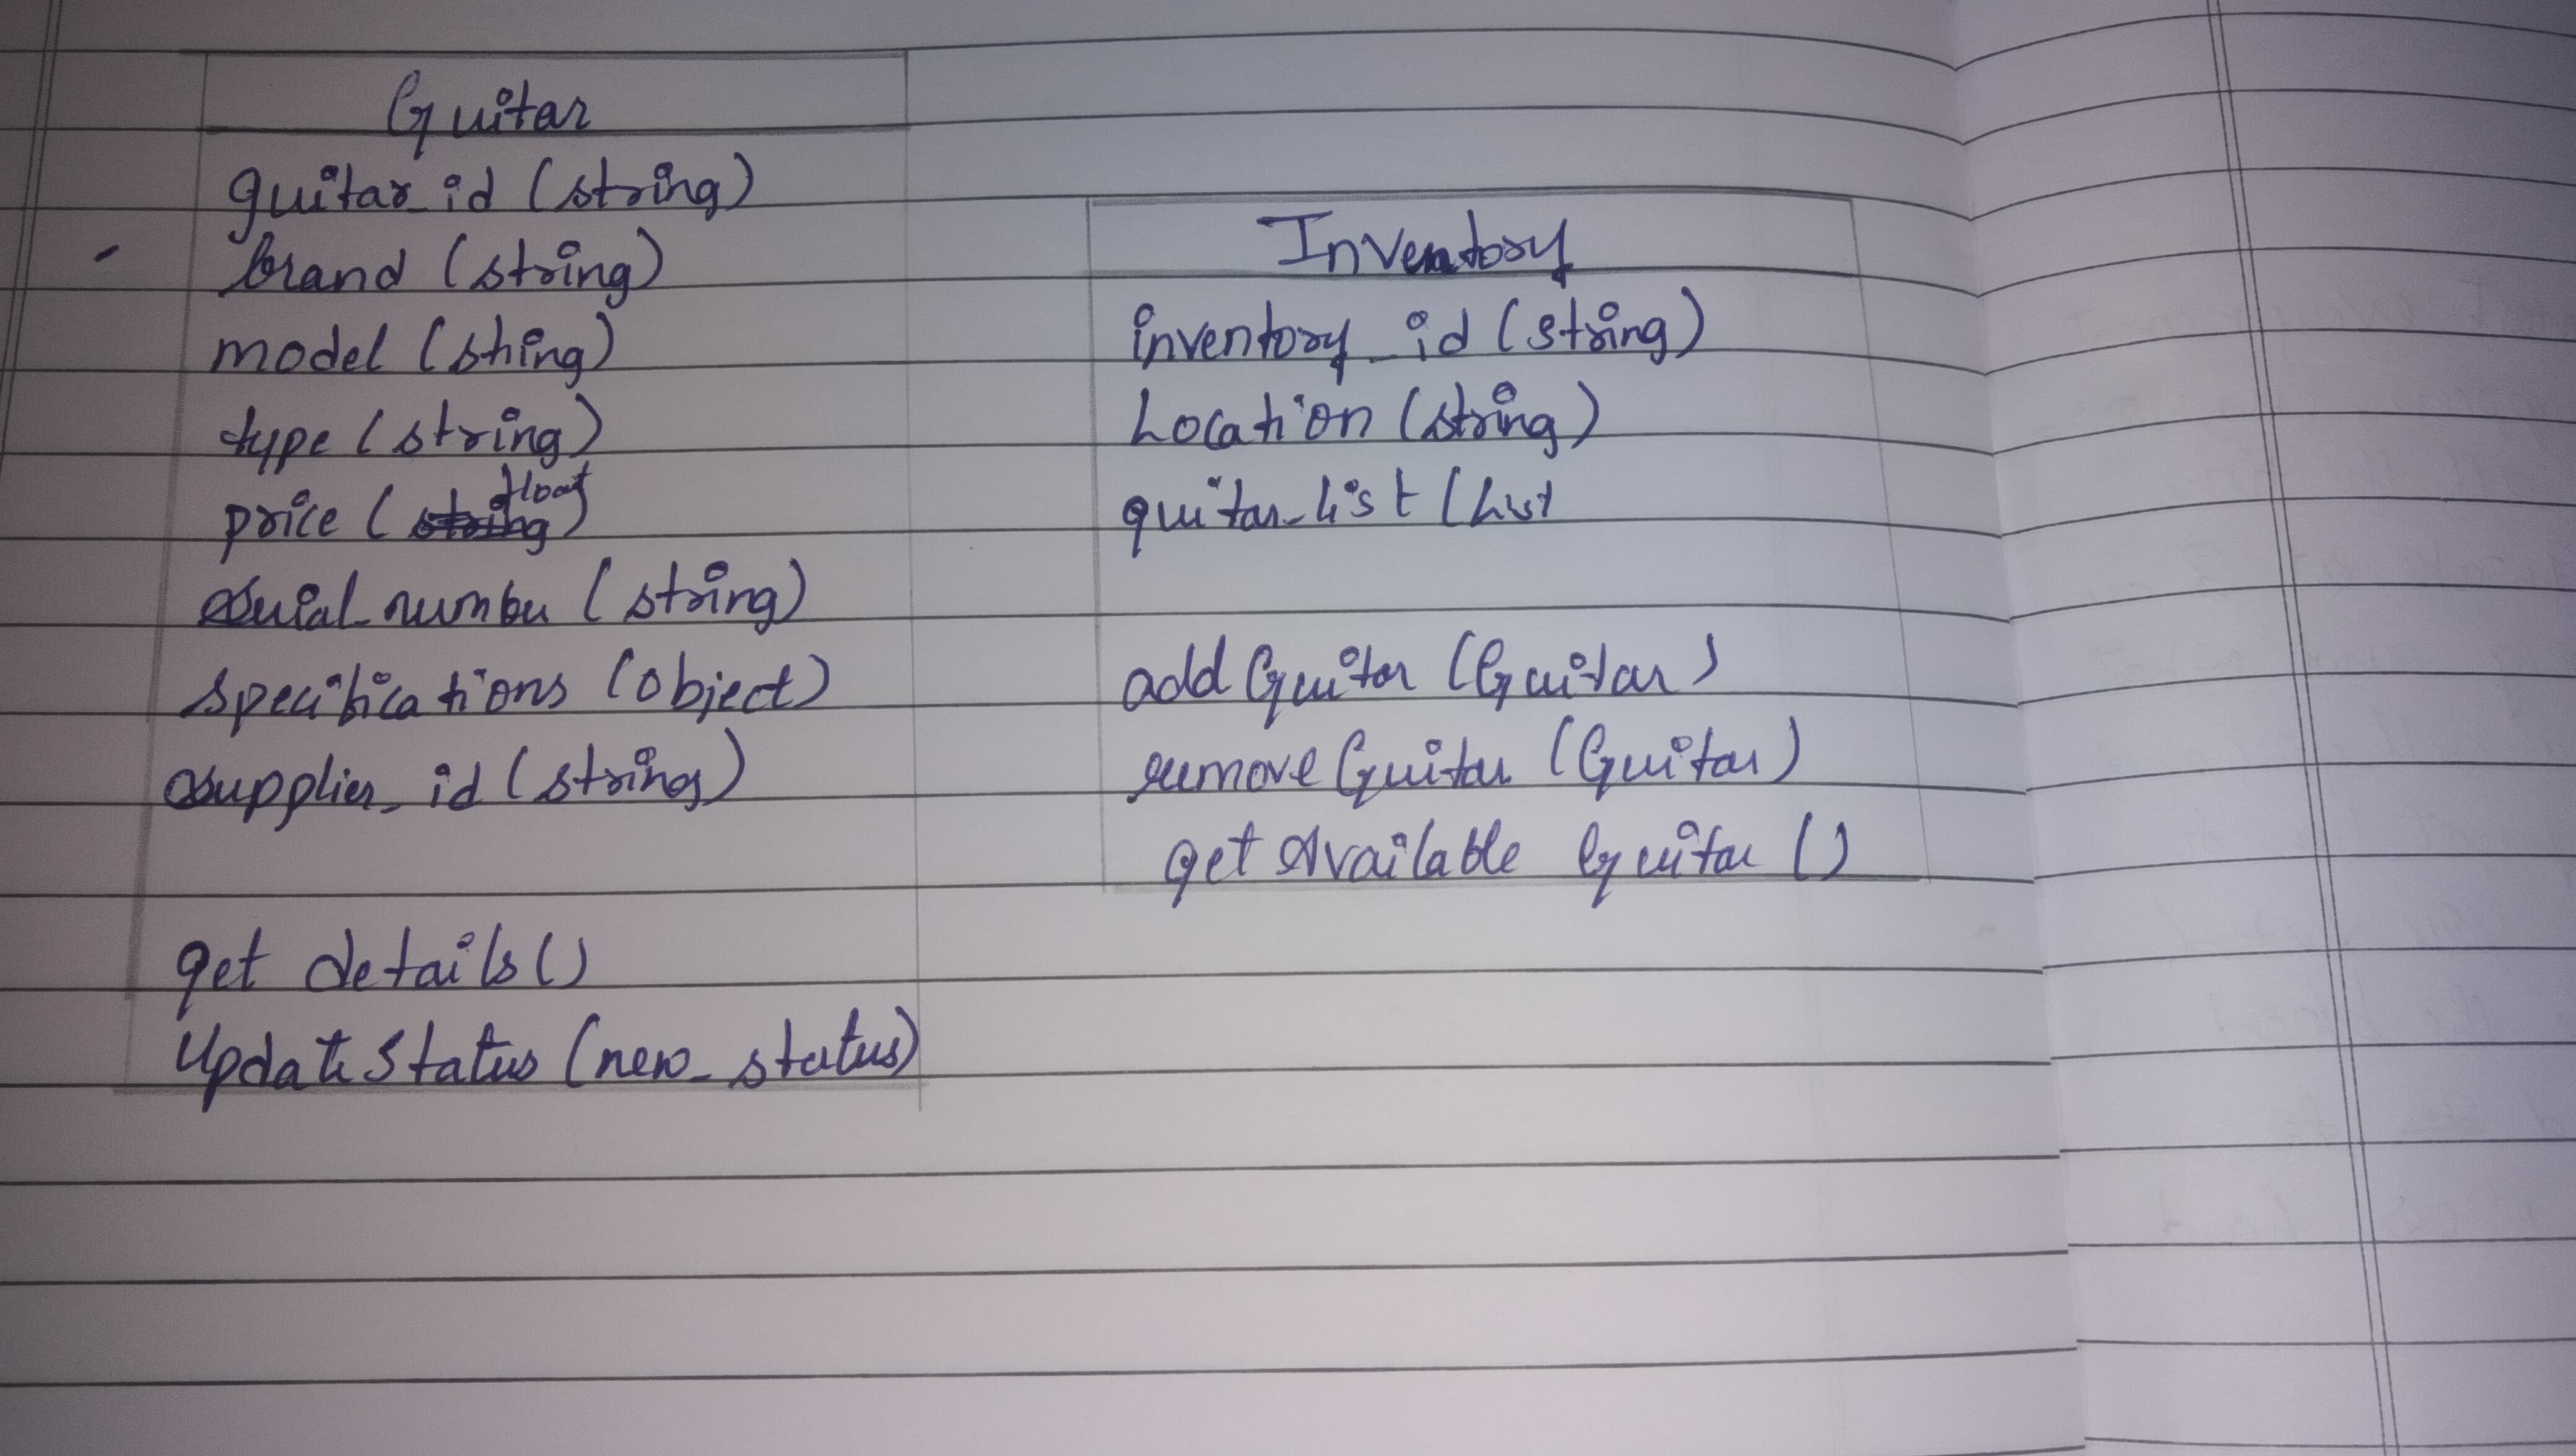 Guitar
guitar_id (string)
brand (string)
model (string)
type (string)
price (float)
serial_number (string)
specifications (object)
supplier_id (string)
get details()
Update Status (new_status)
Inventory
inventory_id (string)
Location (string)
guitar_list (List
add Guitar (Guitar)
remove Guitar (Guitar)
get Available Guitar ()